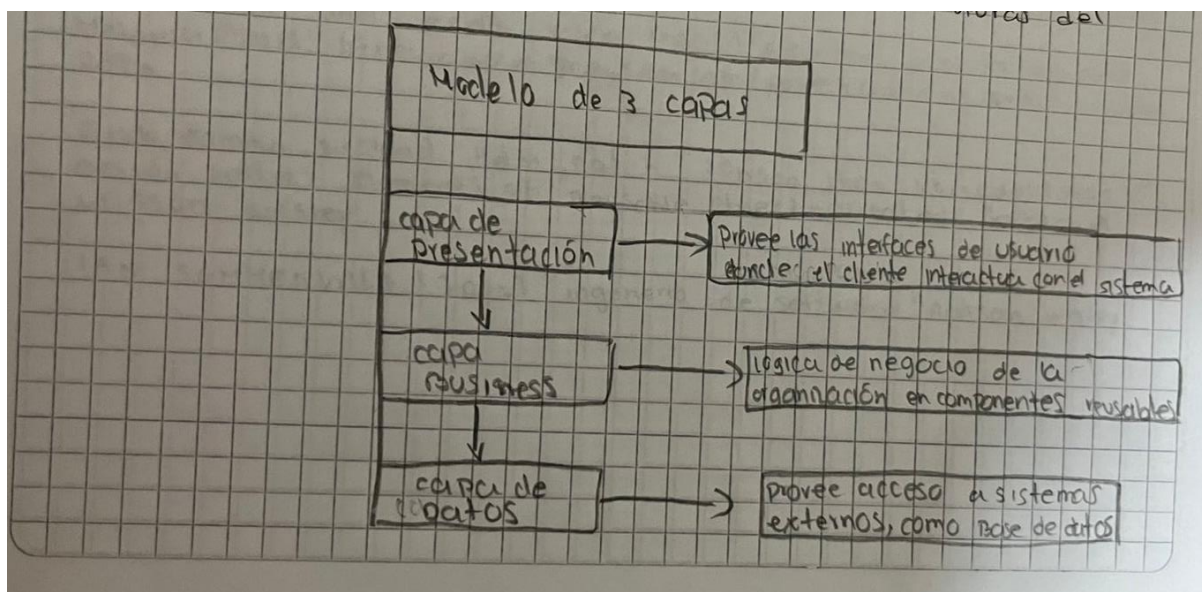 del
Modelo de 3 capas
capa de
presentación
Provee las interfaces de usuario
donde el cliente interactua con el sistema
capa
Business
lógica de negocio de la
organización en componentes reusables
capa de
Datos
provee acceso a sistemas
externos, como Base de datos